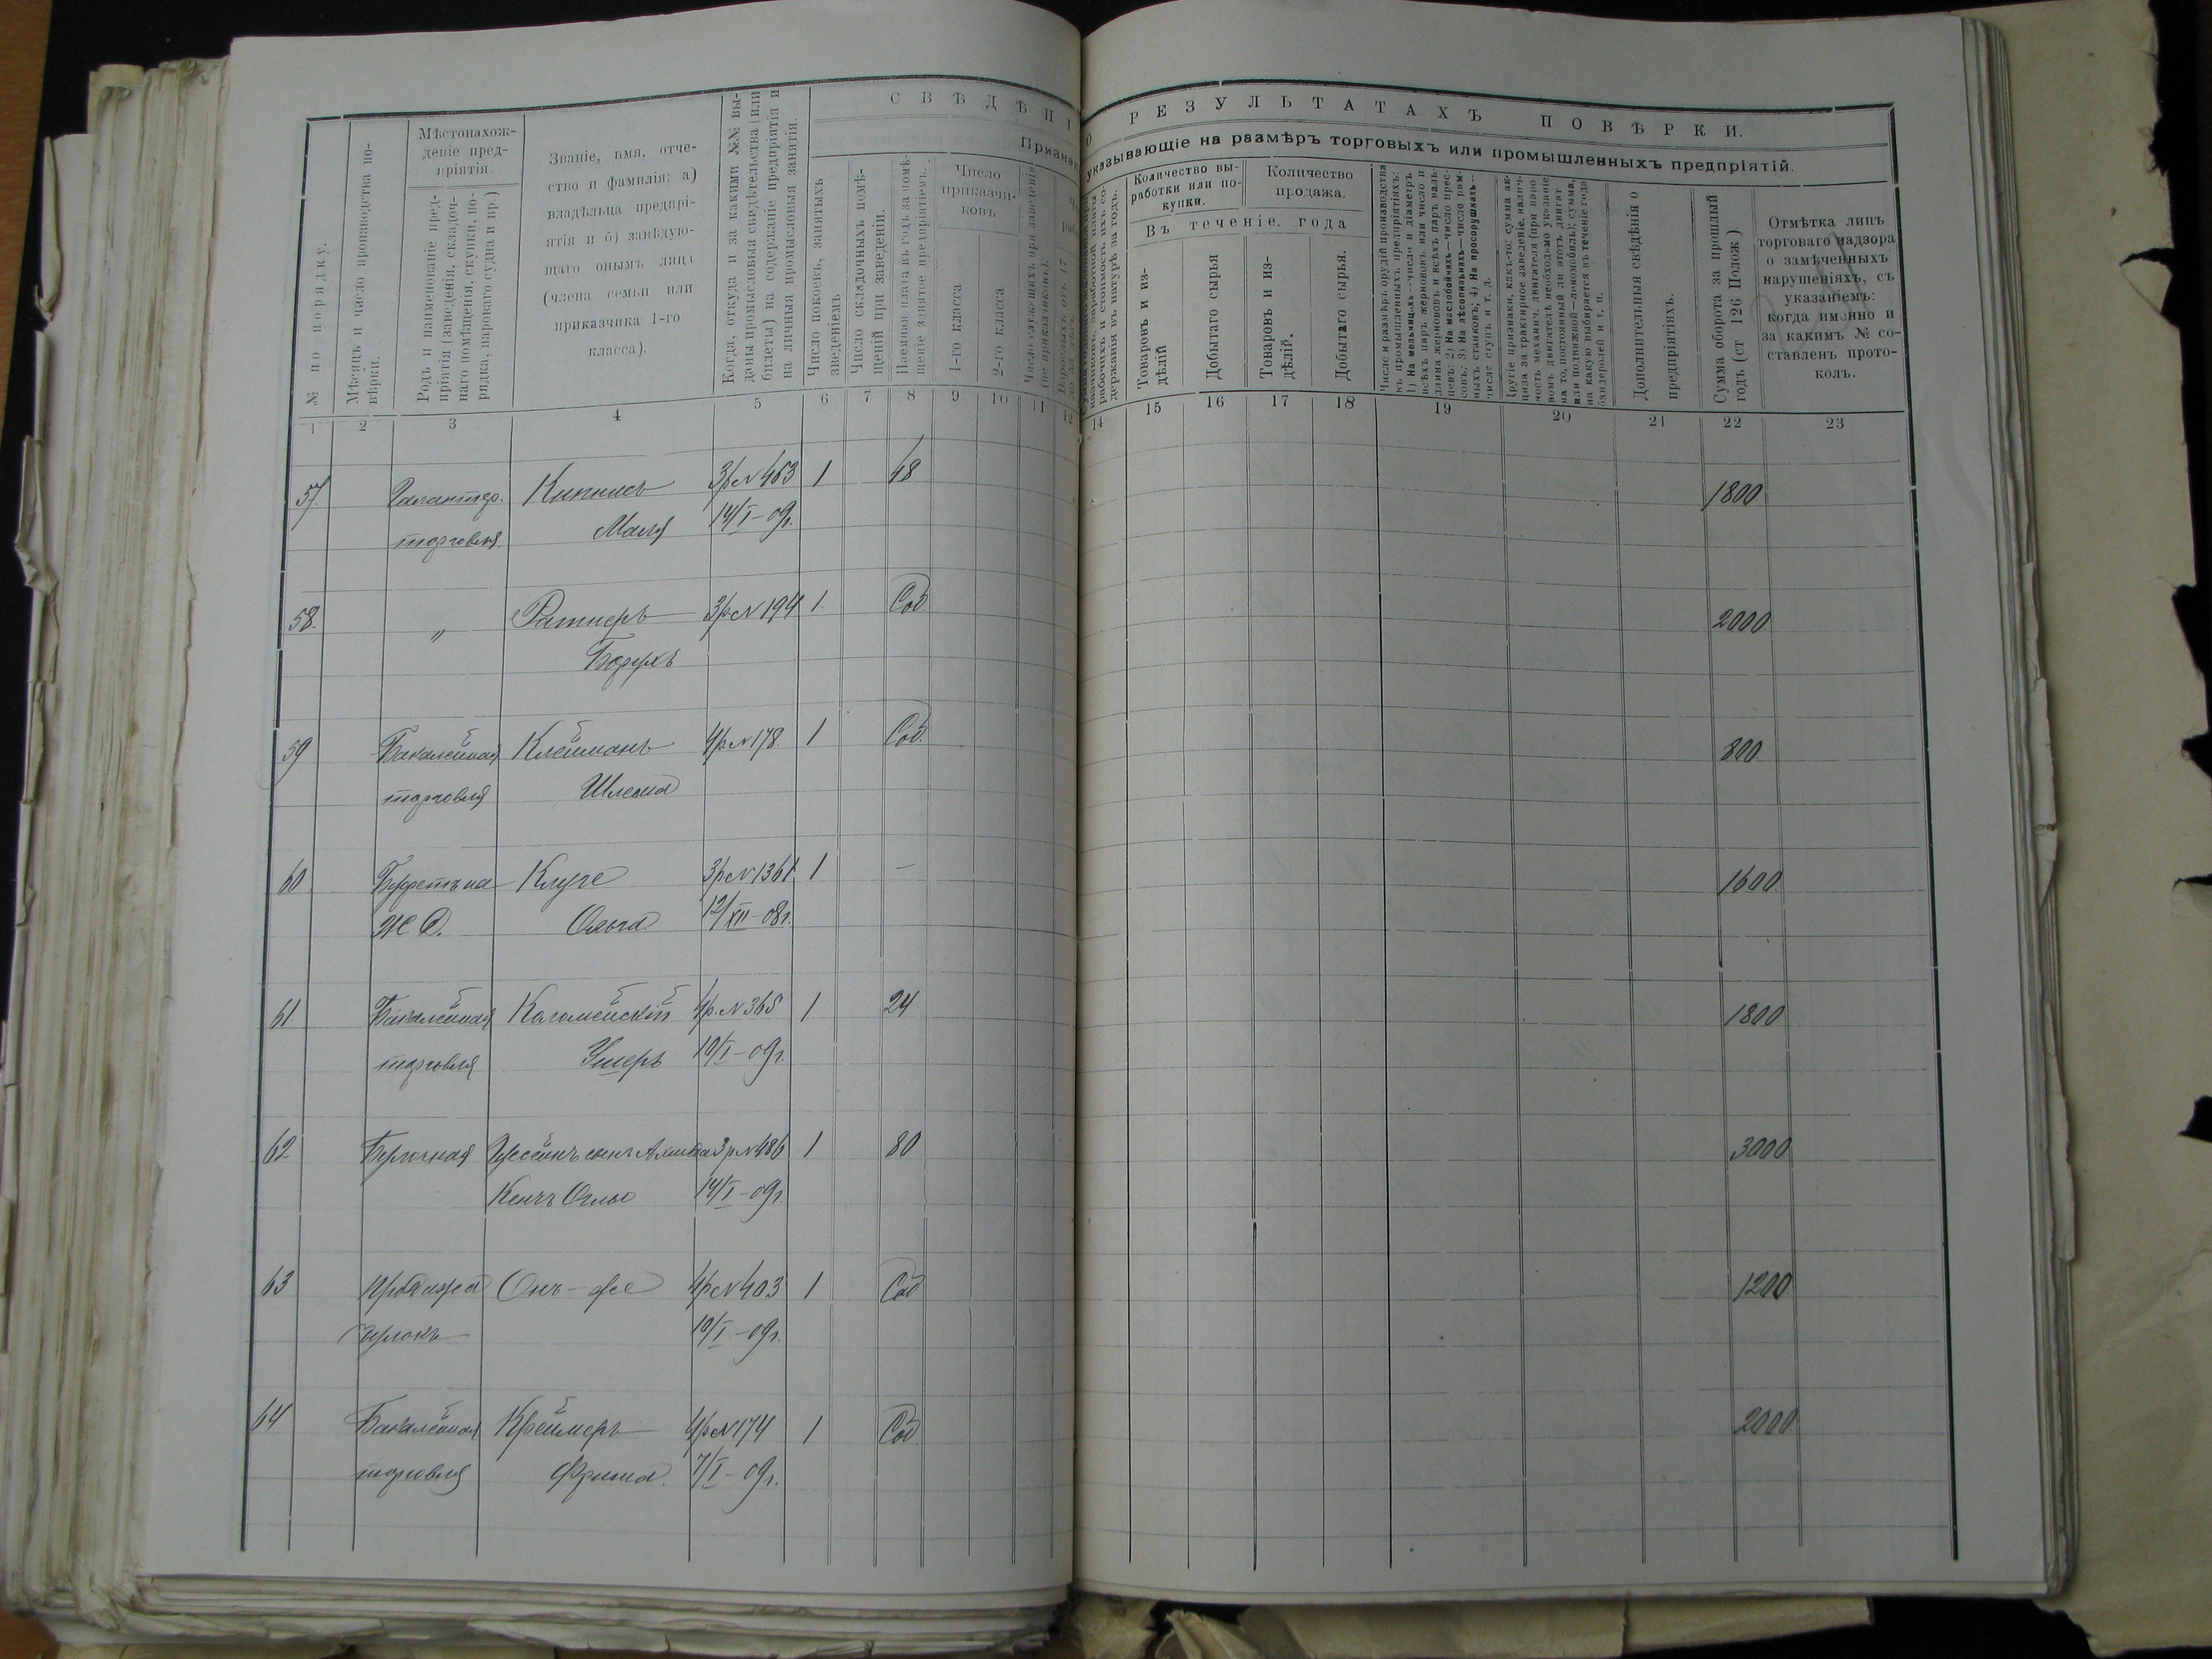 СВѢДѢНІ
О РЕЗУЛЬТАТАХЪ ПОВѢРКИ.
Признак
указывающіе на размѣръ торговыхъ или промышленныхъ предпріятій.
№ по порядку.
Мѣсяцъ и число производства по-
вѣрки.
Мѣстонахож-
деніе пред-
пріятія
Родъ и наименованіе пред-
пріятія (заведенія, складоч-
наго помѣщенія, скупки, по-
ряда, пароваго судна и пр.)
Званіе, имя, отче-
ство и фамилія: а)
владѣльца предпрі-
ятія и б) завѣдую-
щаго онымъ лица
(члена семьи или
приказчика 1-го
класса).
Когда, откуда и за какими №№ вы-
даны промысловыя свидѣтельства (или
билеты) на содержаніе предпріятія и
на личныя промысловыя занятія.
Число покоевъ, занятыхъ
зведеніемъ
Число складочныхъ помѣ-
щеній при заведеніи.
Наемная плата въ годъ за помѣ-
щеніе занятое предпріятіемъ.
Число
приказчи-
ковъ
1-го класса
2-го класса
Число служащихъ при заведеніи
(не приказчиковъ).
Количество вы-
работки или по-
купки.
Количество
продажа.
Въ теченіе, года
Товаровъ и из-
дѣлій
Добытаго сырья
Товаровъ и из-
дѣлій.
Добытаго сырья.
Число и размѣръ орудій производства
въ промышленныхъ предпріятіяхъ:
1) На мельницахъ—число и діаметръ
всѣхъ паръ жернововъ или число и
длина жернововъ и всѣхъ паръ валь-
цевъ; 2) На маслобойняхъ—число прес-
совъ; 3) На лѣсопильняхъ—число рам-
ныхъ станковъ; 4) На просорушкахъ—
число ступъ и т. д.
Другіе признаки, какъ-то: сумма ак-
циза за трактирное заведеніе, налич-
ность механич. двигателя (при паро-
вомъ двигателѣ необходимо указаніе
на то, постоянный ли этотъ двигат
или подвижной—локомобиль); сумма,
на какую выбирается въ теченіе года
бандеролей и т. п.
Дополнительныя свѣдѣнія о
предпріятіяхъ.
Сумма оборота за прошлый
годъ (ст 126 Полож )
Отмѣтка лицъ
торговаго надзора
о замѣченныхъ
нарушеніяхъ, съ
указаніемъ:
когда именно и
за какимъ № со-
ставленъ прото-
колъ.
1 2 3 4 5 6 7 8 9 10 11 12 14 15 16 17 18 19 20 21 22 23
57. Галантер. Киннисъ 3р№463 1 48 1800
торговля. Маля 14/I–09г.
58. „ Ратнеръ 3р№194 1. Соб 2000
Борухъ
59 Бакалейная Клейманъ 4р№178 1 Соб. 800
торговля Шлема
60 Буфетъ на Клуге 3р№1361 1 – 1600
Ж Д. Ольга 12/XII–08г.
61 Бакалейная Коломейскій 4р.№365 1 24 1800
торговля Ушеръ 10/I–09г.
62 Булочная Гусейнъ сынъ 3р№486 1 80 3000
Кенчъ Оглы 14/I–09г.
63 Продажа Онъ–же 4р№403 1 Соб 1200
булокъ 10/I–09г.
64 Бакалейная Креймеръ 4р№174 1 Соб. 2000
торговля Фрима. 7/I–09г.